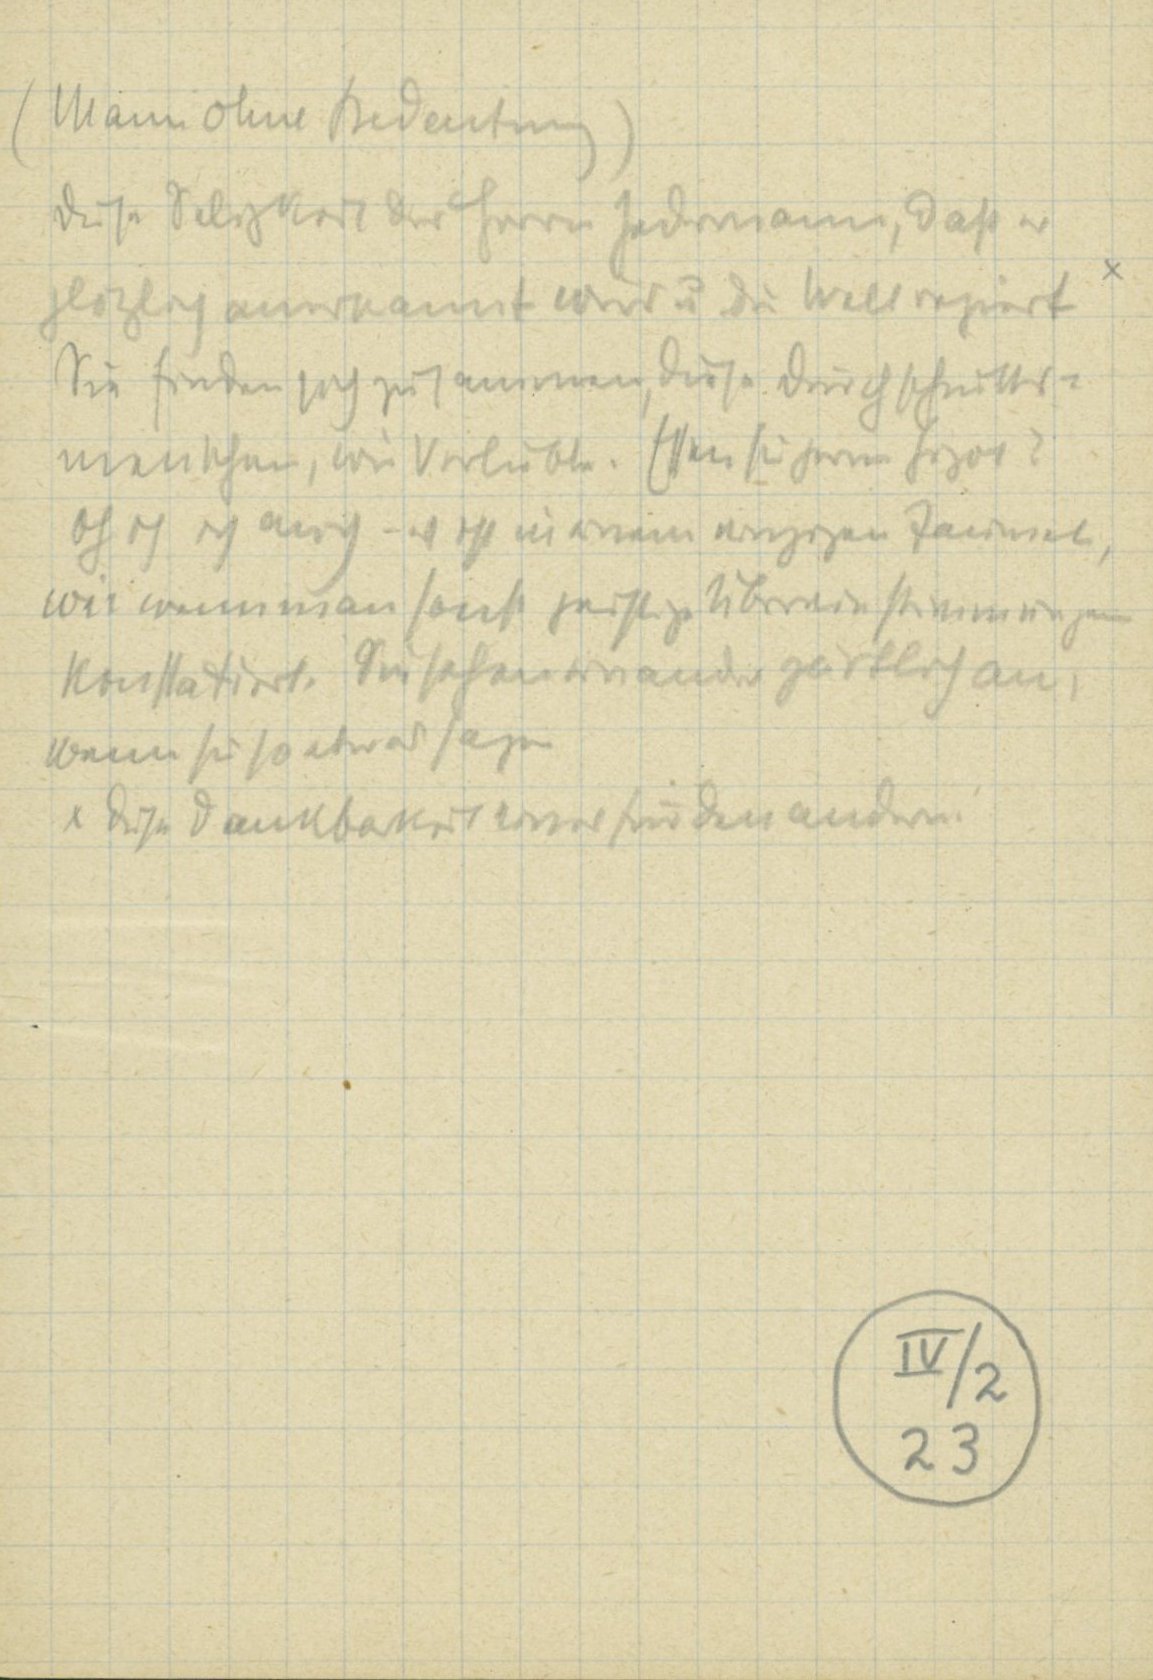 (Mann ohne Bedeutung)
Diese Seligkeit des Herrn Jedermann, daß er
plötzlich anerkannt wird u die Welt regiert ×
Sie finden sich zusammen, diese Durchschnitts-
menschen, wie Verliebte. Essen sie gerne
Oh ich ich auch – es ist in einem einzigen Taumel,
wie wenn man sonst geistige Übereinstimmungen
konstatiert. Sie sehen einander zärtlich an,
wenn sie so etwas sagen
× Diese Dankbarkeit eines für den andern!
IV/2
23